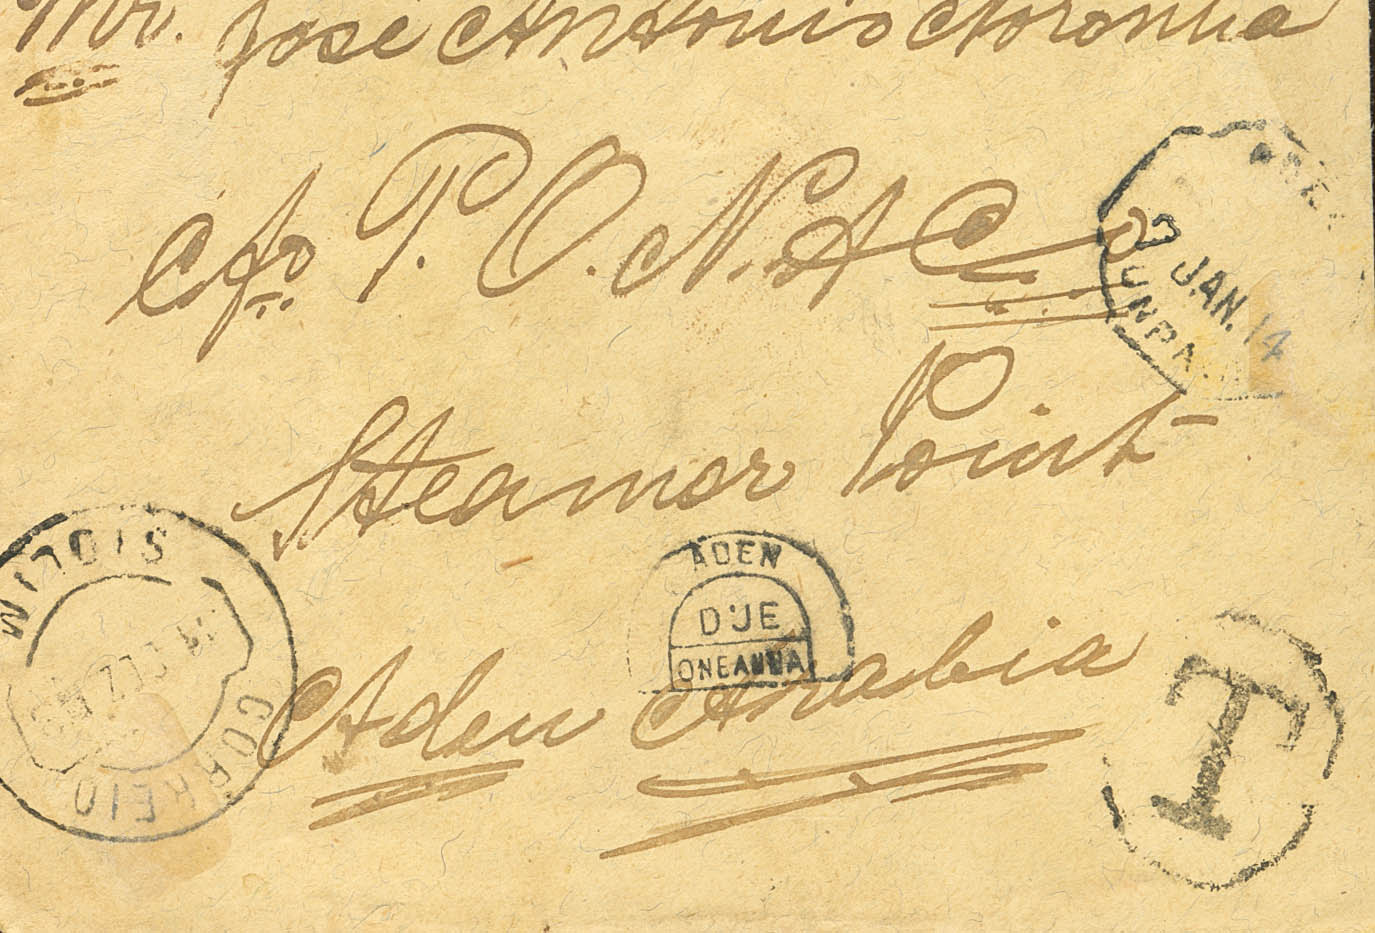 Mr. José Antonio Noronha
C/o P. O. N. A C
ADEN
23 JAN. 14
UNPA
Steamor Point
SIOLIM
CORREIO
ADEN
DUE
ONE ANNA
Aden Arabia
T